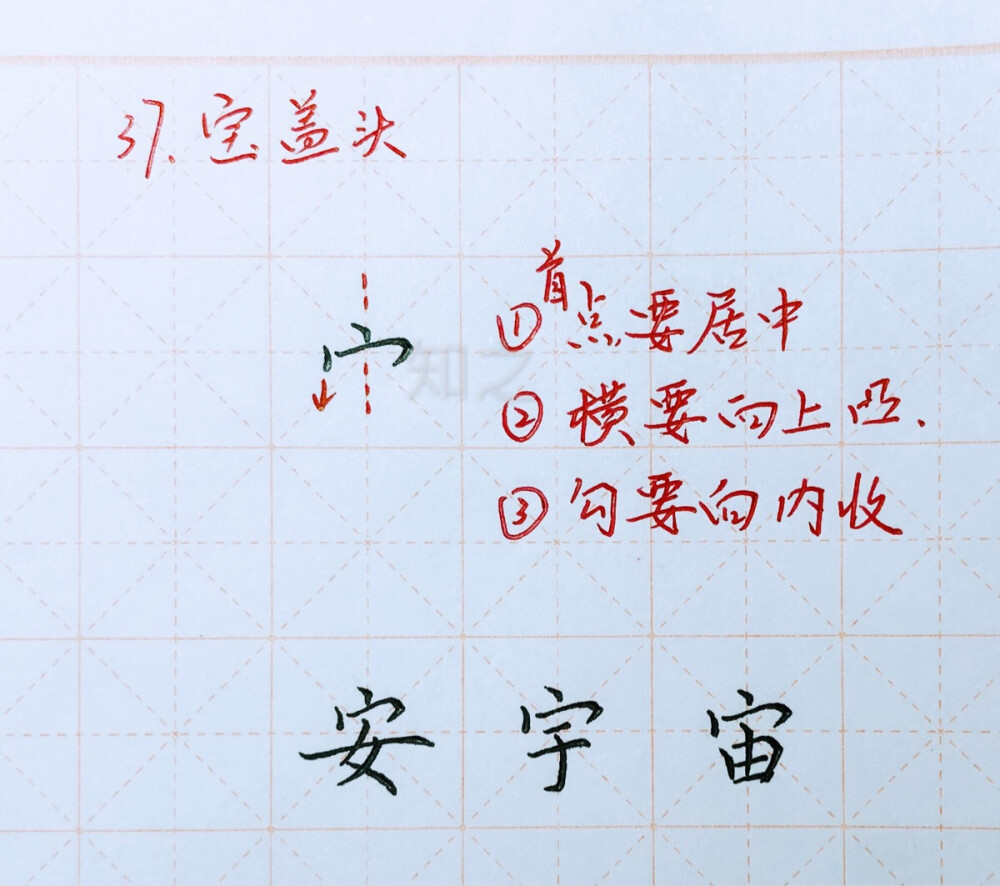 37. 宝盖头
宀
①首点要居中
②横要向上凸.
③勾要向内收
知之
安 宇 宙